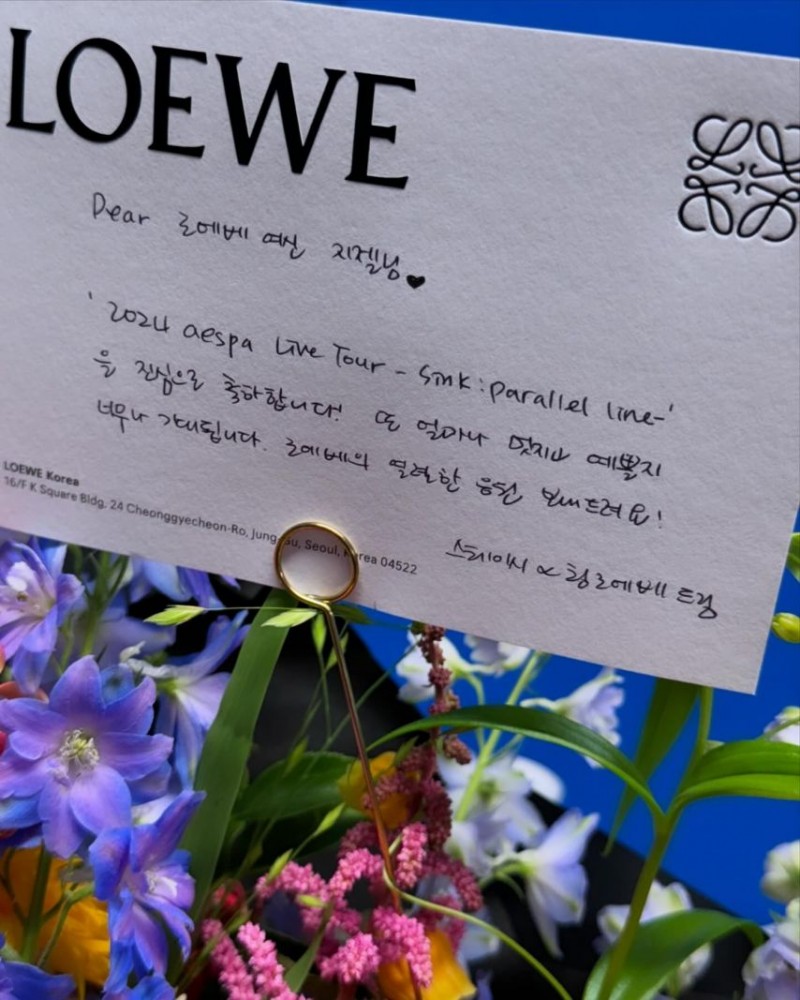 LOEWE
Dear 로에베 여신 지젤님♥
'2024 aespa Live Tour - Synk : parallel line-'
을 진심으로 축하합니다! 또 얼마나 멋지고 예쁠지
너무나 기대됩니다. 로에베의 열렬한 응원 보내드려요!
LOEWE Korea
16/F K Square Bldg, 24 Cheonggyecheon-Ro, Jung-Gu, Seoul, Korea 04522
스테이씨 & 팀로에베 드림